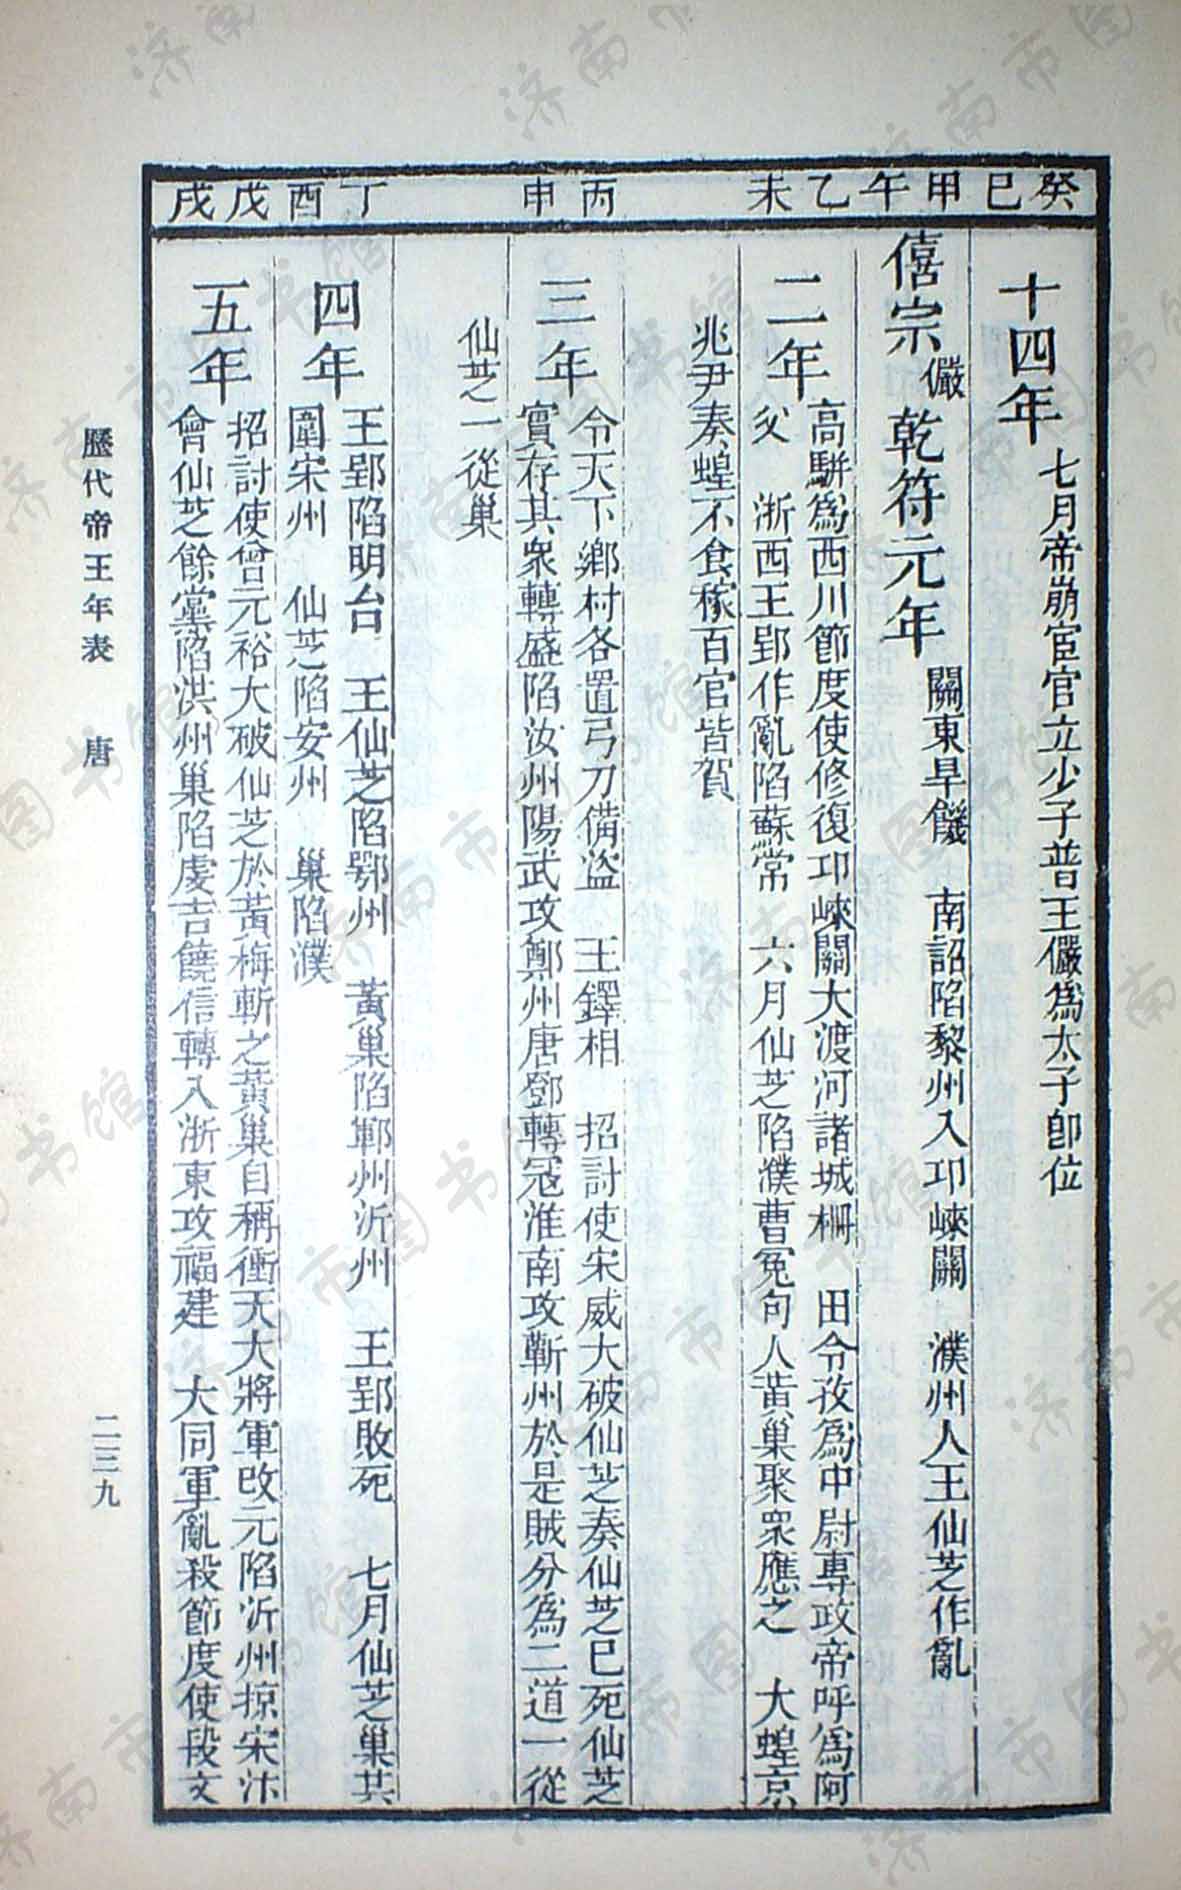 癸巳　甲午　乙未　丙申　丁酉　戊戌
十四年　七月帝崩宦官立少子普王儼爲太子卽位
僖宗儼　乾符元年　關東旱饑　南詔陷黎州入邛崍關　濮州人王仙芝作亂
二年　高駢爲西川節度使修復邛崍關大渡河諸城柵　田令孜爲中尉專政帝呼爲阿
父　浙西王郢作亂陷蘇常　六月仙芝陷濮曹冤句人黃巢聚衆應之　大蝗京
兆尹奏蝗不食稼百官皆賀
三年　令天下鄉村各置弓刀備盜　王鐸相　招討使宋威大破仙芝奏仙芝已死仙芝
實存其衆轉盛陷汝州陽武攻鄭州唐鄧轉寇淮南攻蘄州於是賊分爲二道一從
仙芝一從巢
四年　王郢陷明台　王仙芝陷鄂州　黃巢陷鄆州沂州　王郢敗死　七月仙芝巢共
圍宋州　仙芝陷安州　巢陷濮
五年　招討使曾元裕大破仙芝於黃梅斬之黃巢自稱衝天大將軍改元陷沂州掠宋汴
會仙芝餘黨陷洪州巢陷虔吉饒信轉入浙東攻福建　大同軍亂殺節度使段文
歷代帝王年表　唐　二三九
济南市图书馆